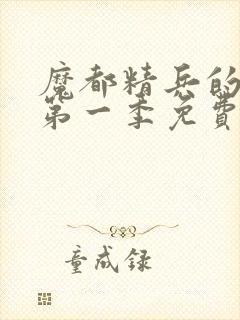 魔都精兵的
第一季免費
童成録